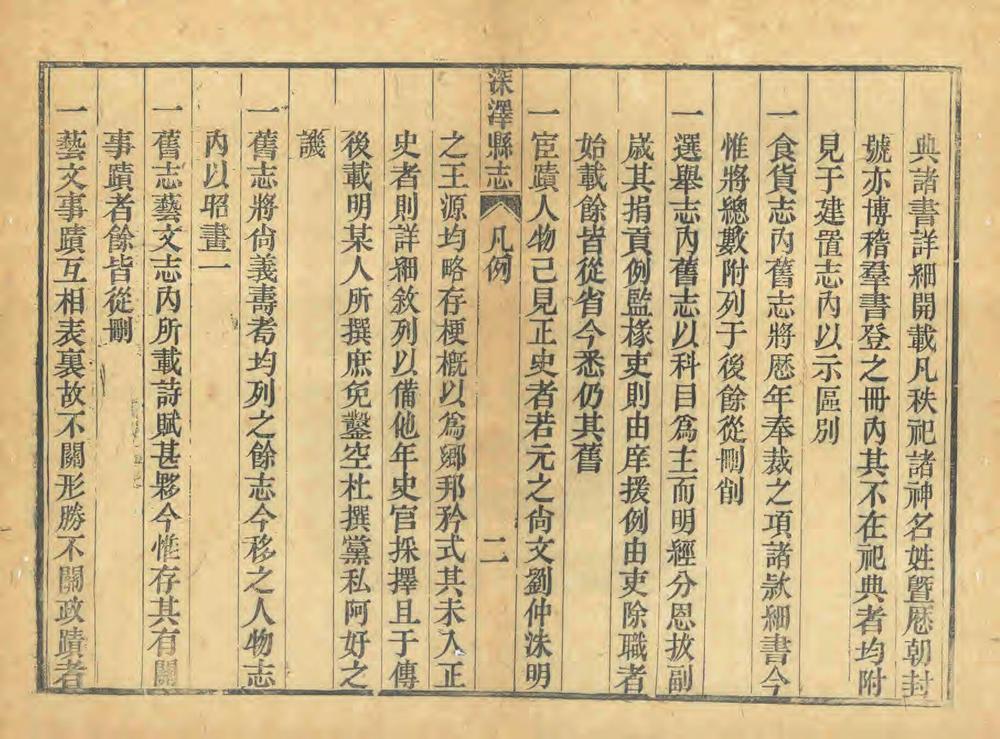 典諸書詳細開載凡秩祀諸神名姓曁厯朝封
號亦博稽羣書登之冊內其不在祀典者均附
見于建置志內以示區別
一食貨志內舊志將厯年奉裁之項諸欵細書今
惟將總數附列于後餘從刪削
一選舉志內舊志以科目爲主而明經分恩拔副
歲其捐貢例監椽吏則由庠援例由吏除職者
始載餘皆從省今悉仍其舊
一宦蹟人物已見正史者若元之尙文劉仲洙明
深澤縣志 凡例 二
之王源均略存梗槪以爲鄉邦矜式其未入正
史者則詳細敘列以備他年史官採擇且于傳
後載明某人所撰庶免鑿空杜撰黨私阿好之
譏
一舊志將尙義壽耈均列之餘志今移之人物志
內以昭畫一
一舊志藝文志內所載詩賦甚夥今惟存其有關
事蹟者餘皆從刪
一藝文事蹟互相表裏故不關形勝不關政蹟者